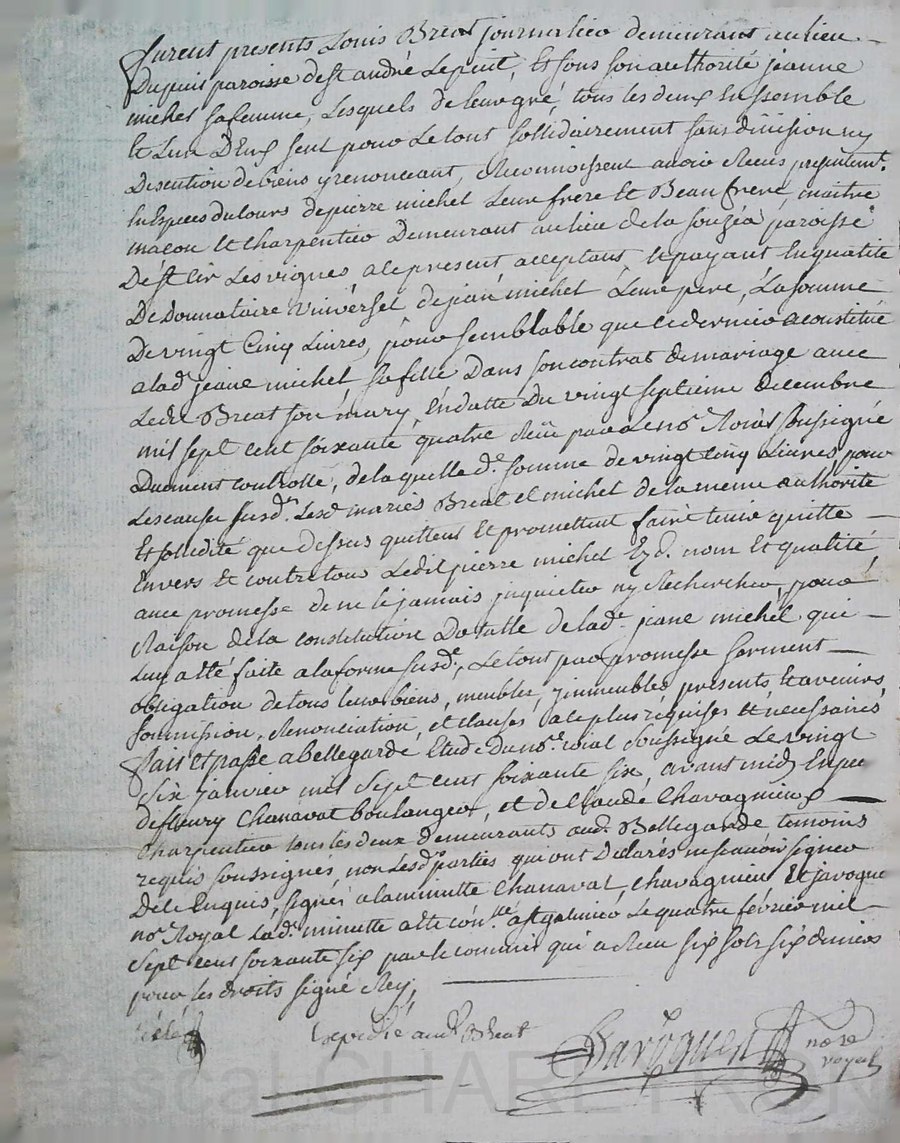 furent presents Louis Breat journalier demeurant au lieu
Dupuis paroisse de st andré Lepuit, Et sous son authorité jeanne
michel sa femme, Lesquels de leur gré, tous les deux Ensemble
Et Lun D'Eux seul pour Le tout sollidairement sans division ny
Discution de biens y renonceant, Reconnoissent avoir Receus presentemt.
En Especes du Cours de pierre michel Leur frere Et Beaufrere, maitre
maçon Et Charpentier Demeurant au lieu de la paroisse
De st Cir Les vignes a ce present acceptant Et payant En qualité
De Donnataire Universel de jean michel Leur pere, La somme
De vingt Cinq Livres, pour semblable que ce dernier a constitué
a lad. jeane michel sa fille Dans son contrat de mariage avec
Ledit Breat son mary, En datte Du vingt septieme Decembre
mil sept cent soixante quatre Receu par Le nore. Roial Soussigné
Duement controllé, de laquelle de. somme de vingt Cinq Livres pour
Les causes susd. Lesd. mariés Breat et michel de la meme authorité
Et sollidité que dessus quittent Et promettent faire tenir quitte
Envers Et contre tous Ledit pierre michel Ezd. nom Et qualité
avec promesse de ne le jamais jnquieter ny Rechercher, pour
Raison de la constitution Dotalle de lad. jeane michel qui
Leur a été faite a la forme susde., Le tout par promesse serment
obligation de tous leurs biens, meubles, jmmeubles, presents, Et avenirs
soumission, Renonciation, et clauses a ce plus requises Et necessaires
fait Et passé a Bellegarde Etude du nore. roial Soussigné Le vingt
six janvier mil sept cent soixante six, avant midy En pnce
de fleury Chanavat boulanger, et de Claude Chavagnieux
Charpentier tous les deux demeurants aud. Bellegarde temoins
requis soussignés, non Lesd. parties qui ont Declarés ne scavoir signer
De ce Enquis, signés a la minutte Chanavat, Chavagnieu Et javoque
nore Royal Lad. minutte a été conllée a st galmier Le quatre février mil
Sept cent soixante six par le commis qui a Receu six sols six deniers
pour les droits signé Rey,
Expedié aud. Breat
Javoques
nore
royal
Pascal CHAREYRON